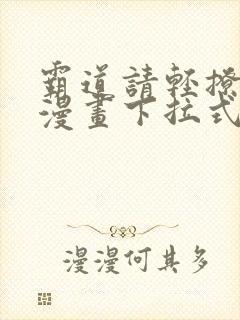 霸道請輕撩
漫畫下拉式
漫漫何其多